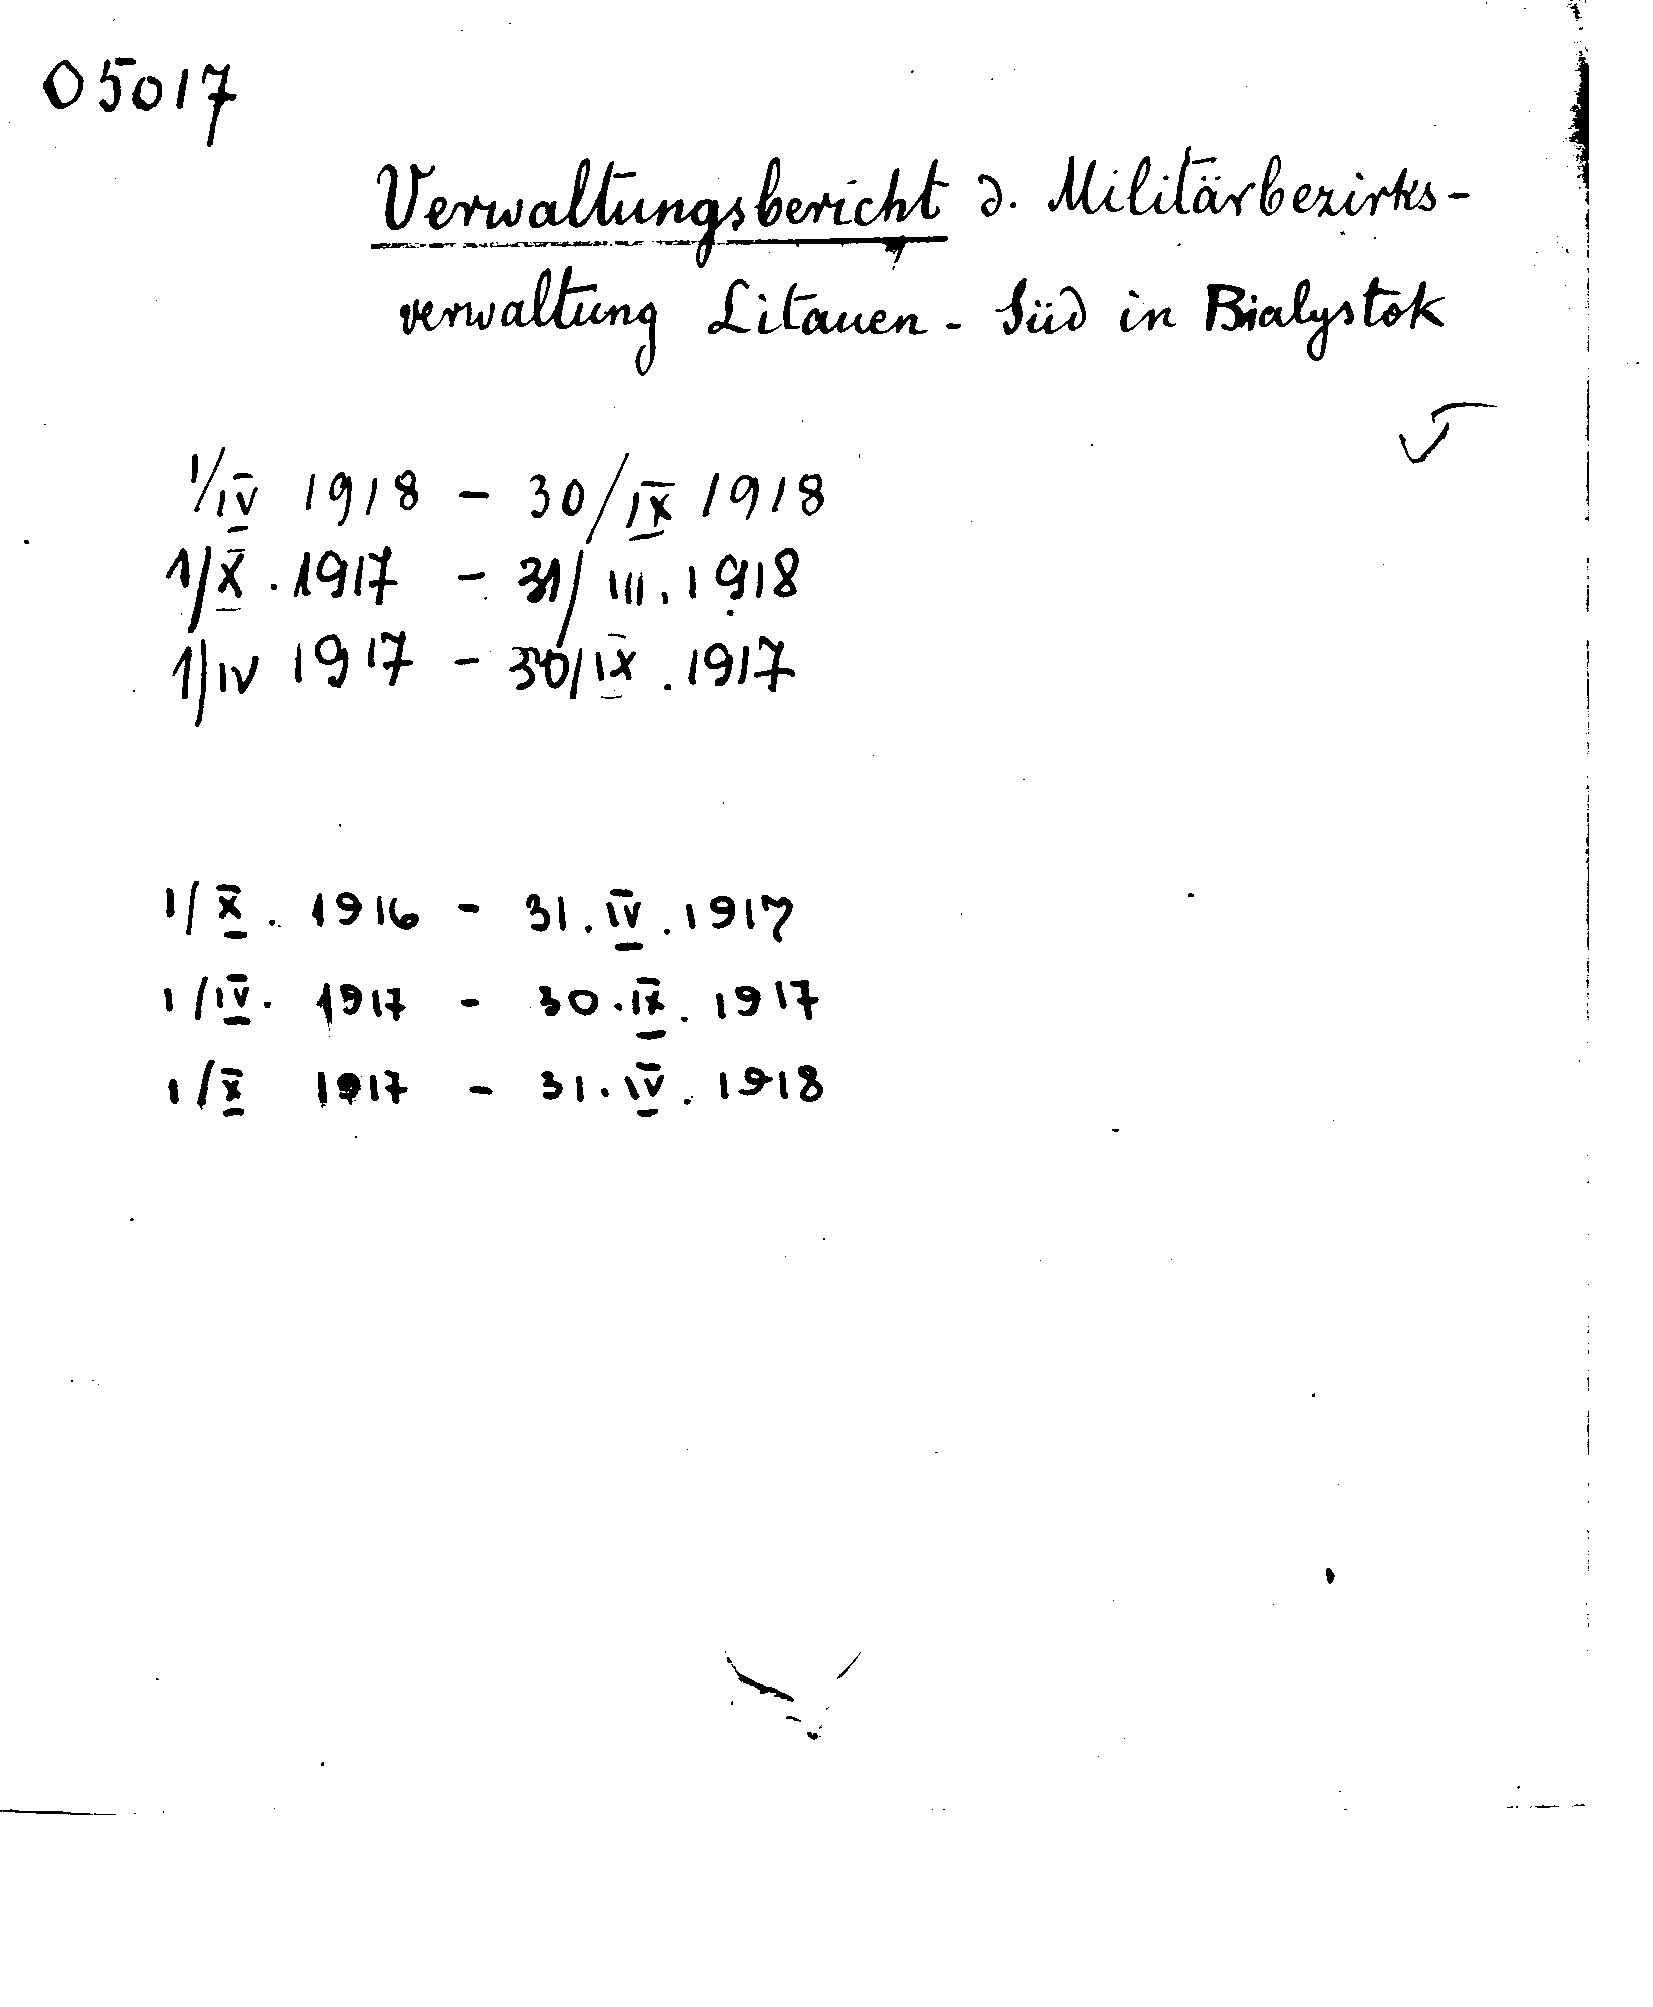 05017
Verwaltungsbericht d. Militärbezirks-
verwaltung Litauen - Süd in Bialystok
1/IV 1918 - 30/IX 1918
1/X . 1917 - 31/III. 1918
1/IV 1917 - 30/IX . 1917
1/X . 1916 - 31. IV . 1917
1/IV. 1917 - 30. IX . 1917
1/X 1917 - 31. IV . 1918